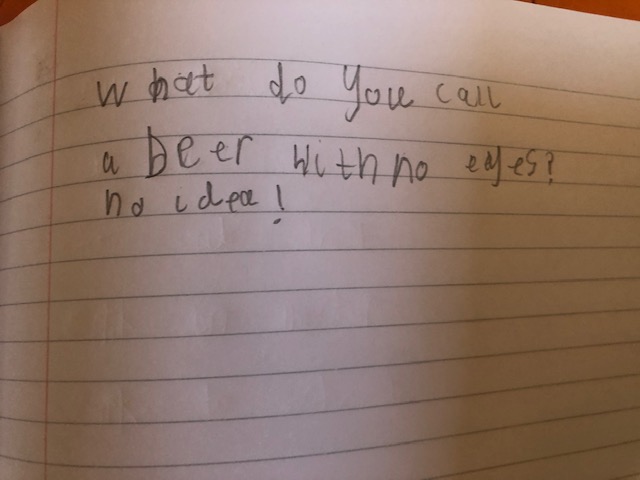 What do you call
a beer with no eyes?
no idea!